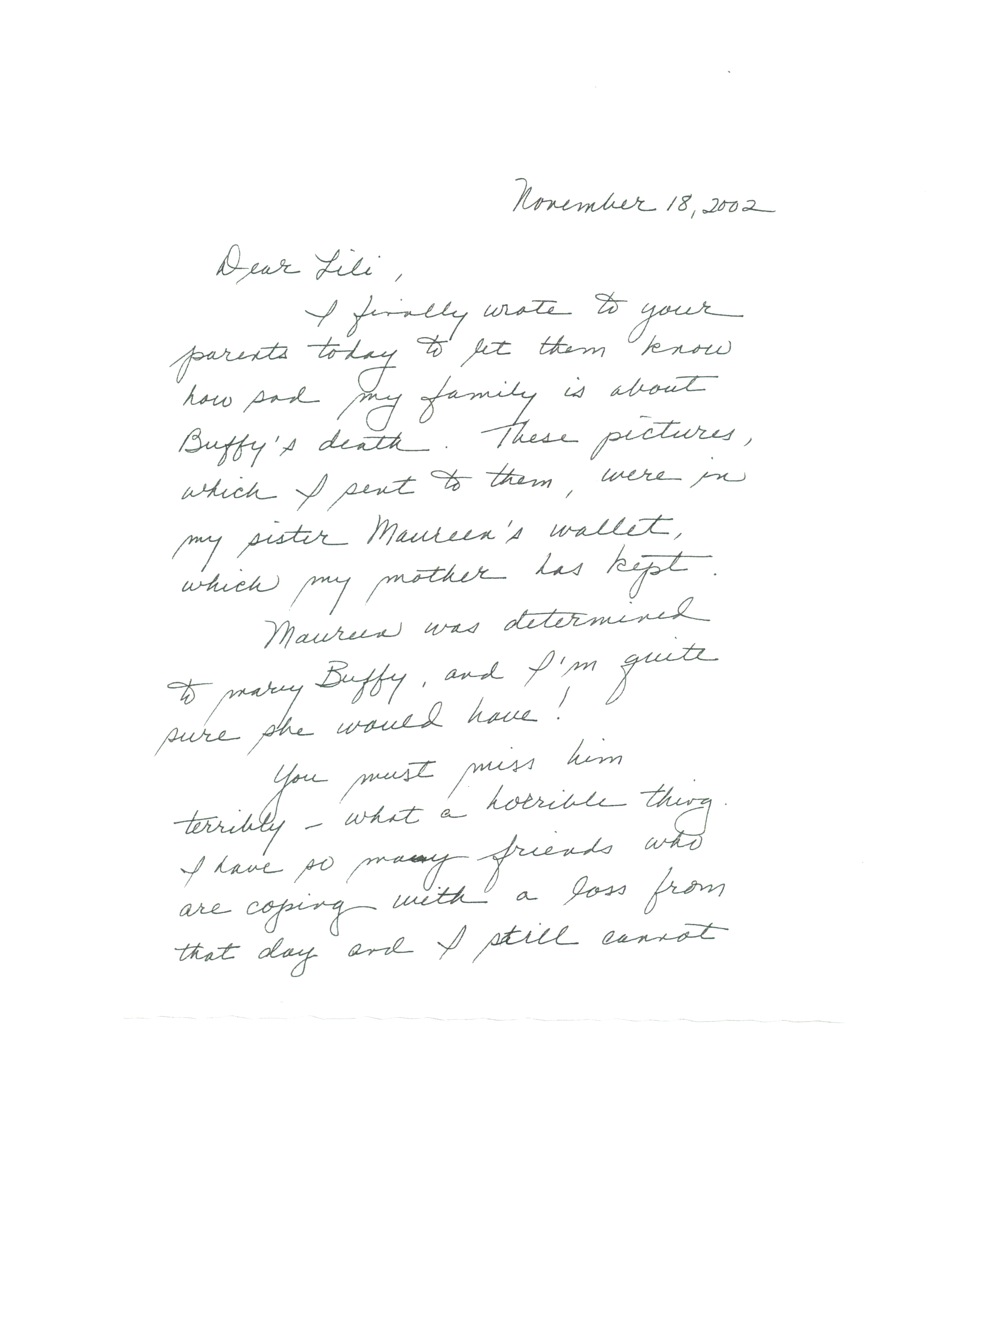 November 18, 2002
Dear Lili,
I finally wrote to your
parents today to let them know
how sad my family is about
Buffy's death. These pictures,
which I sent to them, were in
my sister Maureen's wallet,
which my mother has kept.
Maureen was determined
to marry Buffy, and I'm quite
sure she would have!
You must miss him
terribly - what a horrible thing.
I have so many friends who
are coping with a loss from
that day and I still cannot